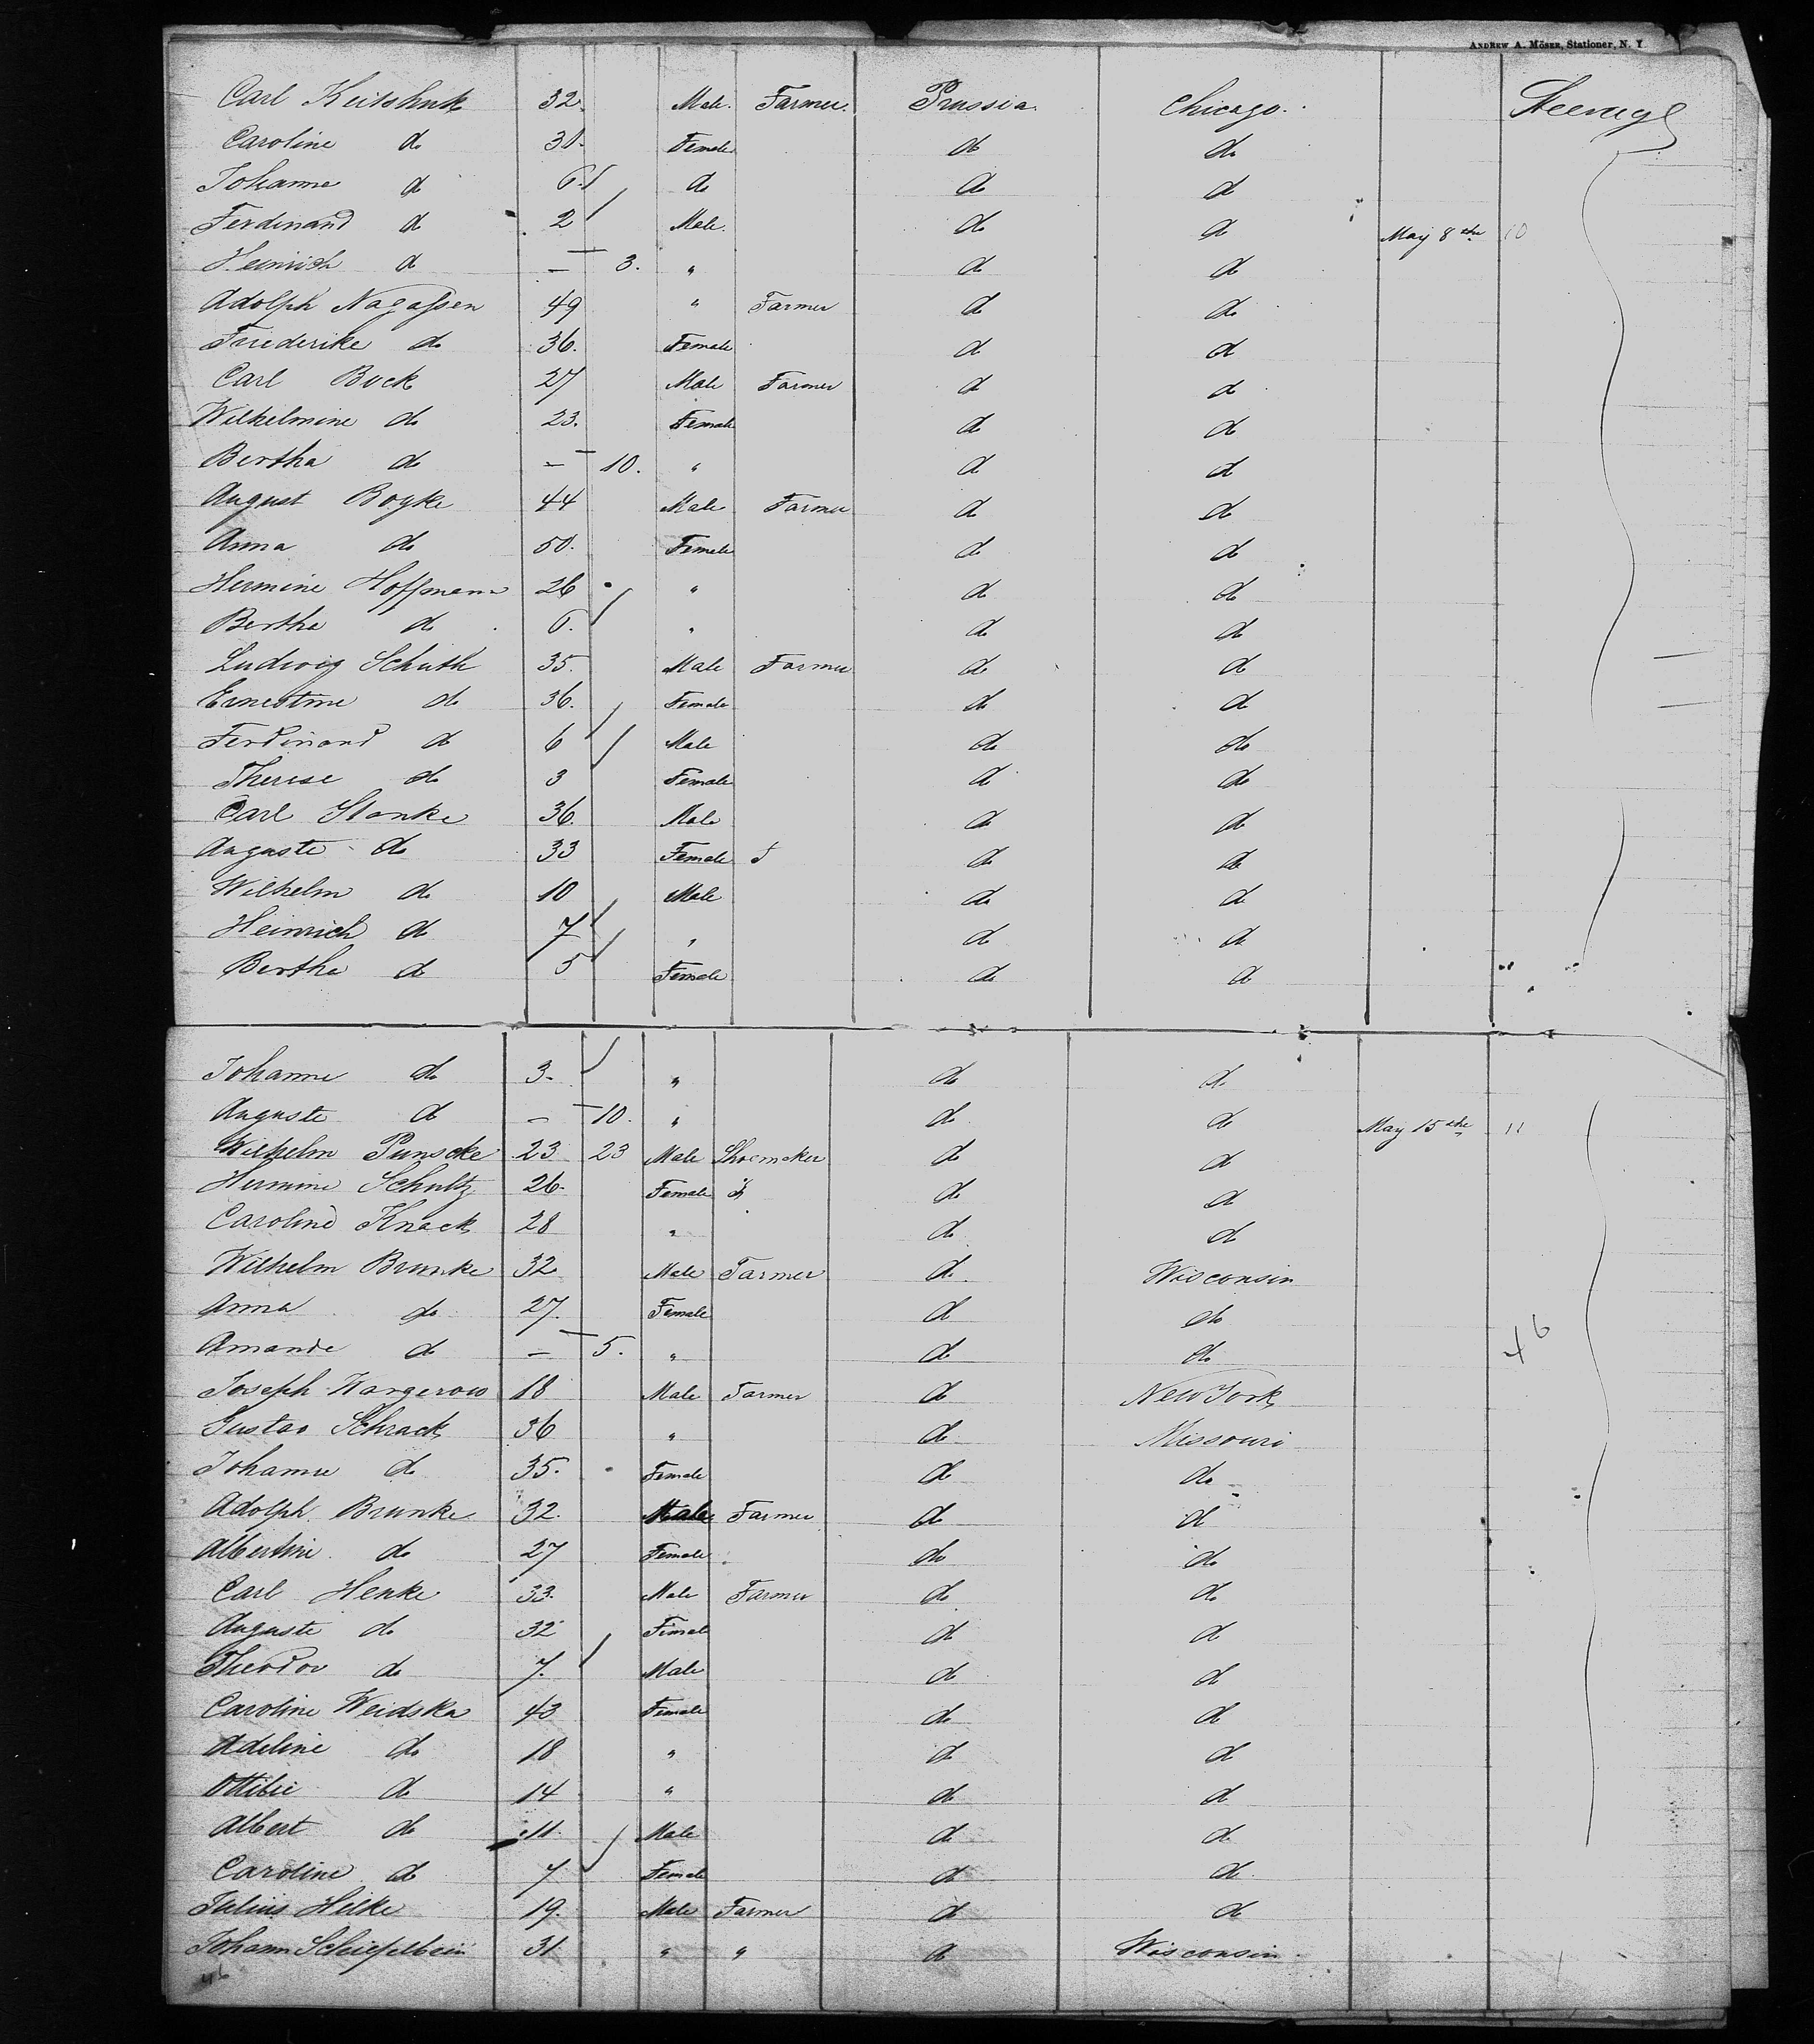 ANDREW A. MÖSER, Stationer, N. Y.
Carl 32. Male. Farmer. Prussia. Chicago. Steerage
Caroline do 31. Female do do
Johanne do 6. do do do
Ferdinand do 2 Male. do do May 8th 10
Heinrich do — 3. " do do
Adolph Nagassen 49 " Farmer do do
Friederike do 36. Female do do
Carl Bock 27 Male Farmer do do
Wilhelmine do 23. Female do do
Bertha do — 10. " do do
August Boyke 44 Male Farmer do do
Anna do 50. Female do do
Hermine Hoffmann 26 " do do
Bertha do 6. " do do
Ludwig Schuth 35. Male Farmer do do
Ernestine do 36. Female do do
Ferdinand do 6 Male do do
Therese do 3 Female do do
Carl Stanke 36 Male do do
Auguste do 33 Female do do
Wilhelm do 10 Male do do
Heinrich do 7 " do do
Bertha do 5 Female do do
Johanne do 3. " do do
Auguste do — 10. " do do May 15th 11
Wilhelm Punscke 23 23 Male Shoemaker do do
Hermine Schultz 26. Female do do
Caroline Knack 28 " do do
Wilhelm Brunke 32 Male Farmer do. Wisconsin
Anna do 27. Female do do
Amande do — 5. " do do 46
Joseph Wargerow 18 Male Farmer do New York
Gustav Schrack 36 " do Missouri
Johanne do 35. Female do do
Adolph Brunke 32. Male Farmer do do
Albertine do 27 Female do do
Carl Henke 33. Male Farmer do do
Auguste do 32 Female do do
Theodor do 7. Male do do
Caroline Weidska 43 Female do do
Adeline do 18 " do do
Ottilie do 14 " do do
Albert do 11. Male do do
Caroline do 7 Female do do
Julius Hilke 19. Male Farmer do do
Johann Schiefelbein 31 " " do Wisconsin
46